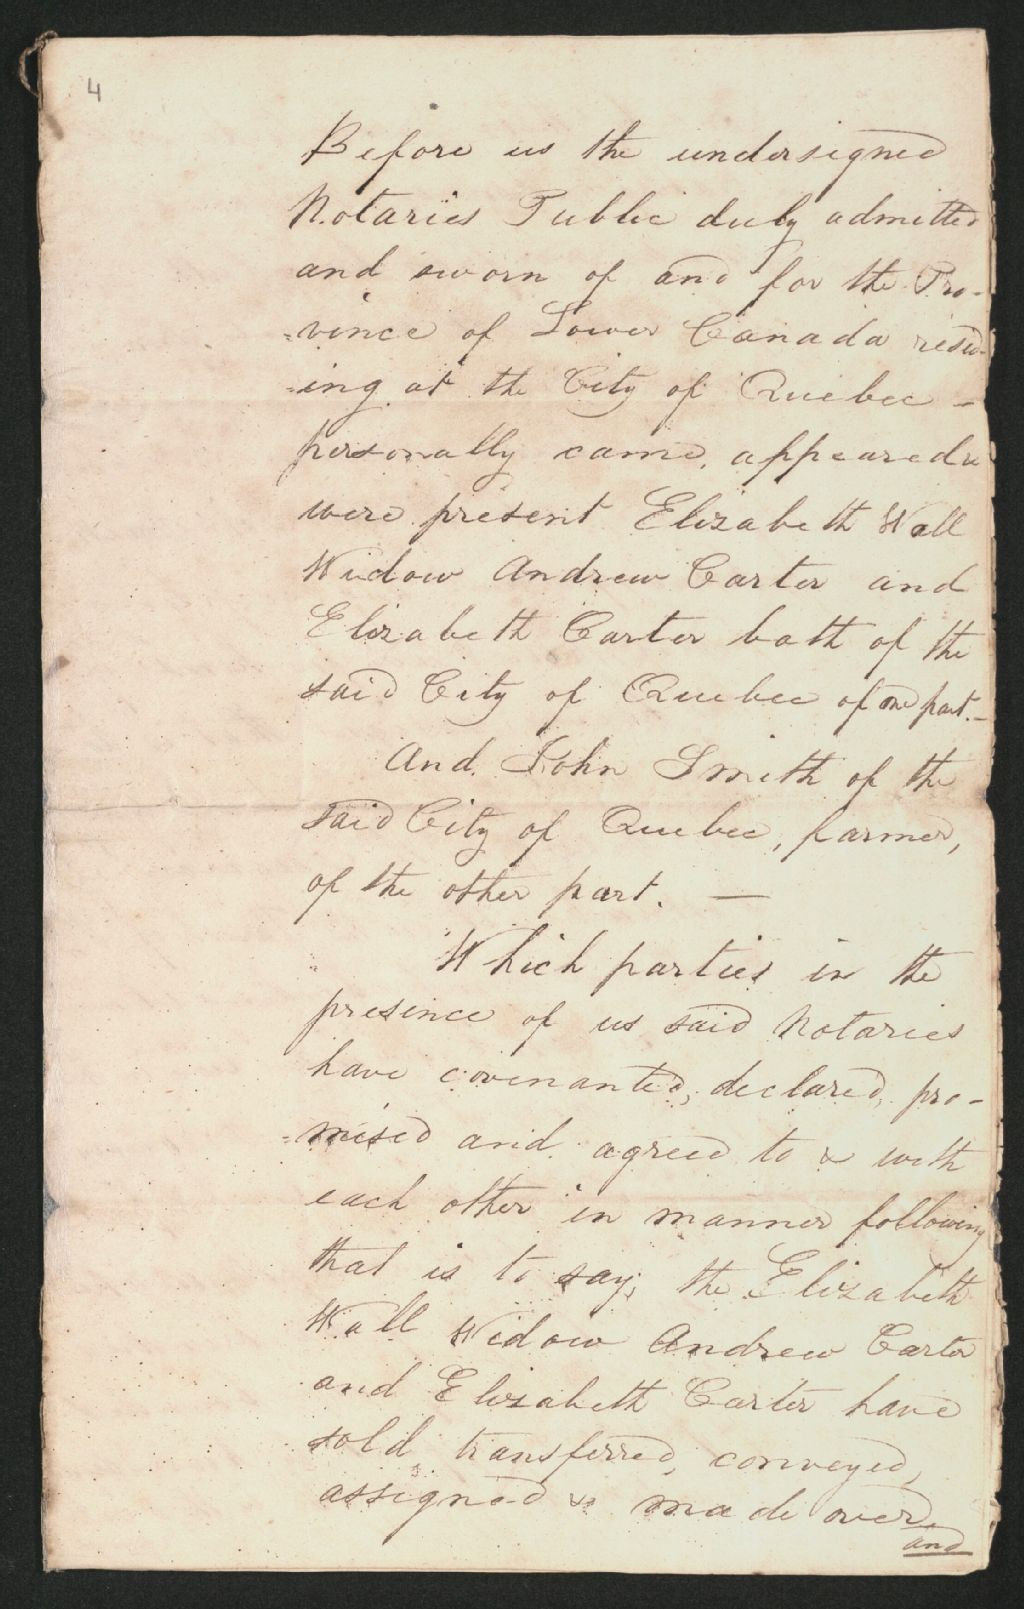 4
Before us the undersigned
Notaries Public duly admitted
and sworn of and for the Pro-
=vince of Lower Canada resid-
=ing at the City of Quebec -
personally came, appeared &
were present Elizabeth Wall
Widow Andrew Carter and
Elizabeth Carter both of the
said City of Quebec of one part. -
And John Smith of the
said City of Quebec, farmer,
of the other part. —
Which parties in the
presence of us said Notaries
have covenanted, declared, pro-
=mised and agreed to & with
each other in manner following
that is to say, the Elizabeth
Wall Widow Andrew Carter
and Elizabeth Carter have
sold, transferred, conveyed,
assigned & made over
and